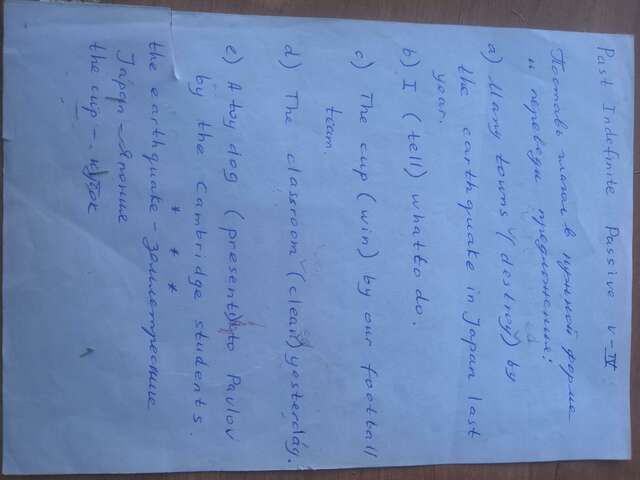 Past Indefinite Passive V-IV
Поставь глагол в нужной форме
и переведи предложения:
a) Many towns (destroy) by
the earthquake in Japan last
year.
b) I (tell) what to do.
c) The cup (win) by our football
team.
d) The classroom (clean) yesterday.
e) A toy dog (present) to Pavlov
by the Cambridge students.
* * *
the earthquake - землетресение
Japan - Япония
the cup - кубок